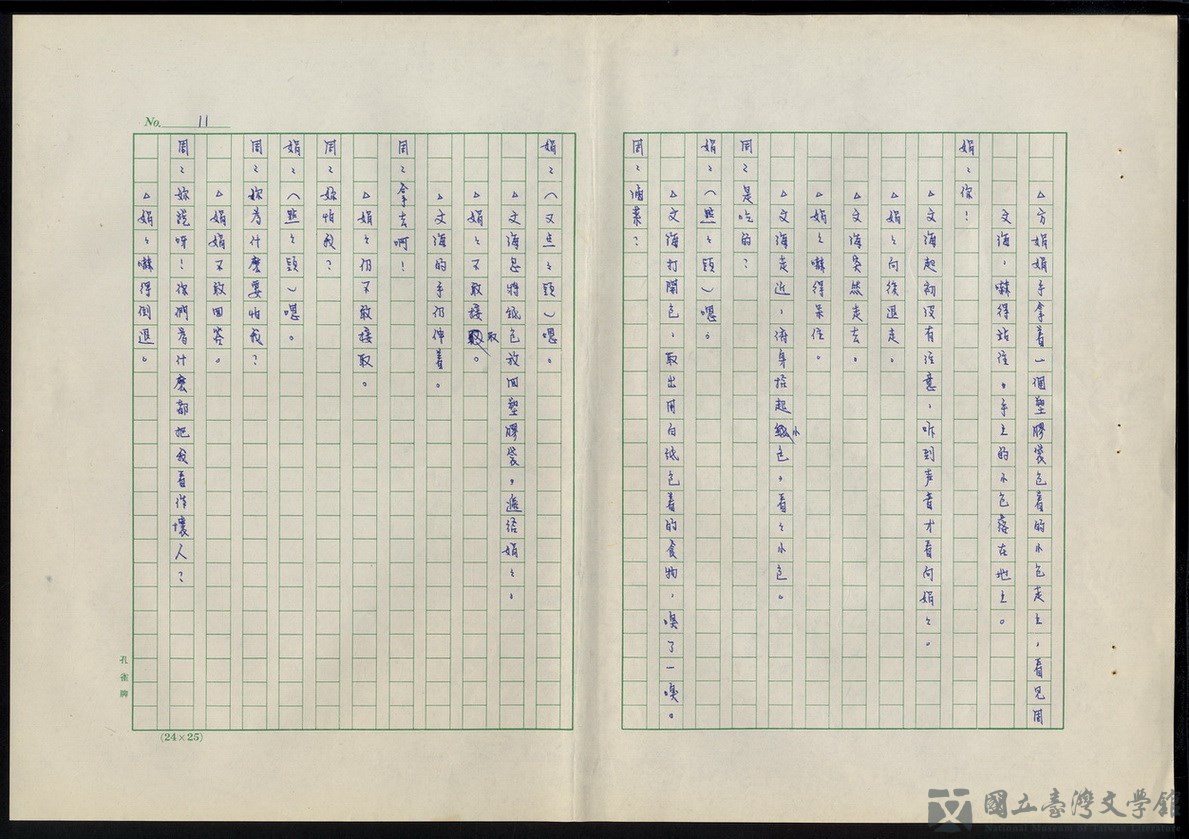 △方娟娟手拿着一個塑膠袋包着的小包走上，看見周
文海，嚇得站住。手上的小包落在地上。
娟：你！
△文海起初沒有注意，咋到声音才看向娟々。
△娟々向後退走。
△文海突然走去。
△娟々嚇得呆住。
△文海走近，俯身拾起小包。看々小包。
周：是吃的？
娟：（點々頭）嗯。
△文海打開包，取出用白纸包着的食物，嗅了一嗅。
周：滷菜？
No. 11
娟：（又点々頭）嗯。
△文海忽將纸包放回塑膠袋，遞给娟々。
△娟々不敢接取。
△文海的手仍伸着。
周：拿去啊！
△娟々仍不敢接取。
周：妳怕我？
娟：（點々頭）嗯。
周：妳為什麼要怕我？
△娟娟不敢回答。
周：妳說呀！你們為什麽都把我看作壞人？
△娟々嚇得倒退。
孔雀牌
(24×25)
國立臺灣文學館
National Museum of Taiwan Literature